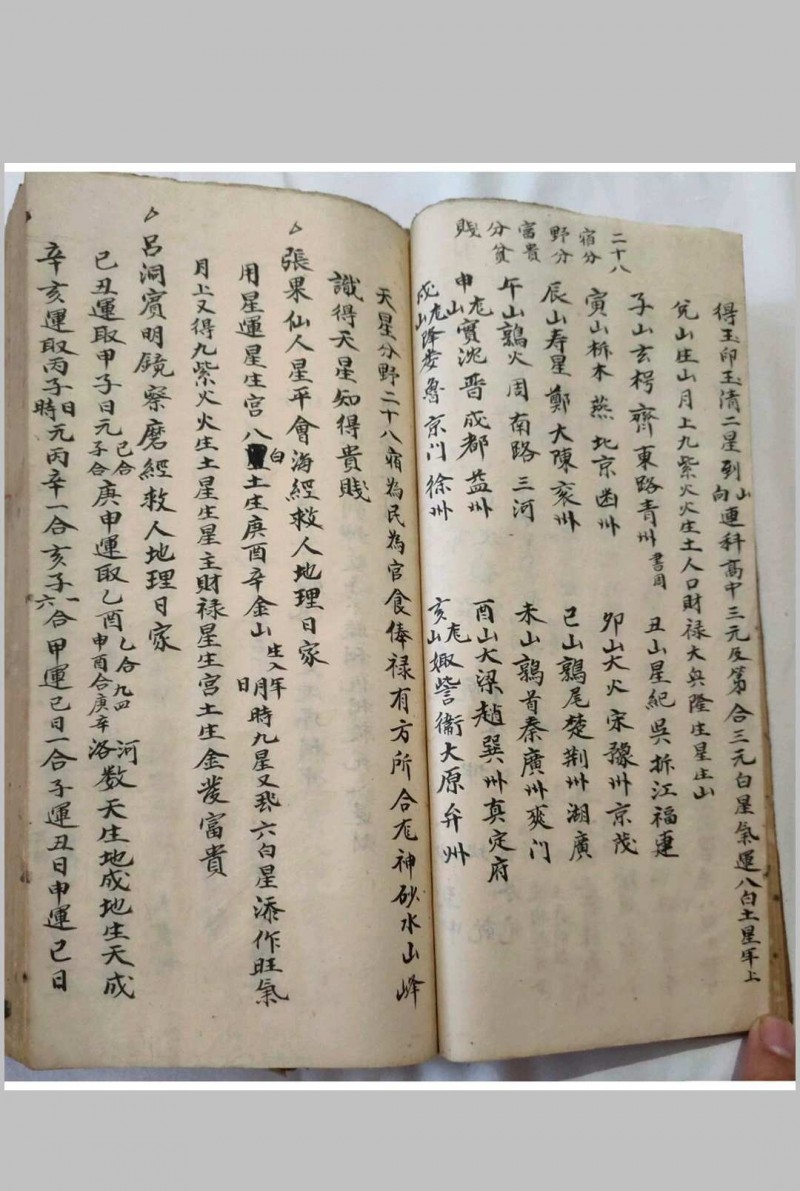 得玉印玉清二星到山向連科高中三元及第合三元白星氣運八白土星軍上
兌山庄山月上九紫火火生土人口財禄大兵隆庄星庄山
子山玄枵齊東路青州書周 丑山星紀吳折江福連
寅山析木燕北京幽州 夘山大火宋豫州京茂
辰山寿星鄭大陳兗州 巳山鶉尾楚荆州湖廣
午山鶉火周南路三河 未山鶉首秦廣州爽门
申山尨實沈晋成都益州 酉山大梁趙巽州真定府
戌山尨降娄魯京门徐州 亥山尨娵訾衞大原弁州
二十八
宿分
野分
富貴
分貧
賤
天星分野二十八宿為民為官食俸禄有方所合尨神砂水山峰
識得天星知得貴賤
張果仙人星平會海經救人地理日家
用星運星生宫八白土生庚酉辛金山生入年月日時九星又飛六白星添作旺氣
月上又得九紫火火生土星生星主財禄星生宫土生金發富貴
吕洞賓明鏡察磨經救人地理日家
己丑運取甲子日元己合子合庚申運取乙酉乙合九四申酉合庚辛河洛数天生地成地生天成
辛亥運取丙子日時元丙辛一合亥子六一合甲運己日一合子運丑日申運巳日